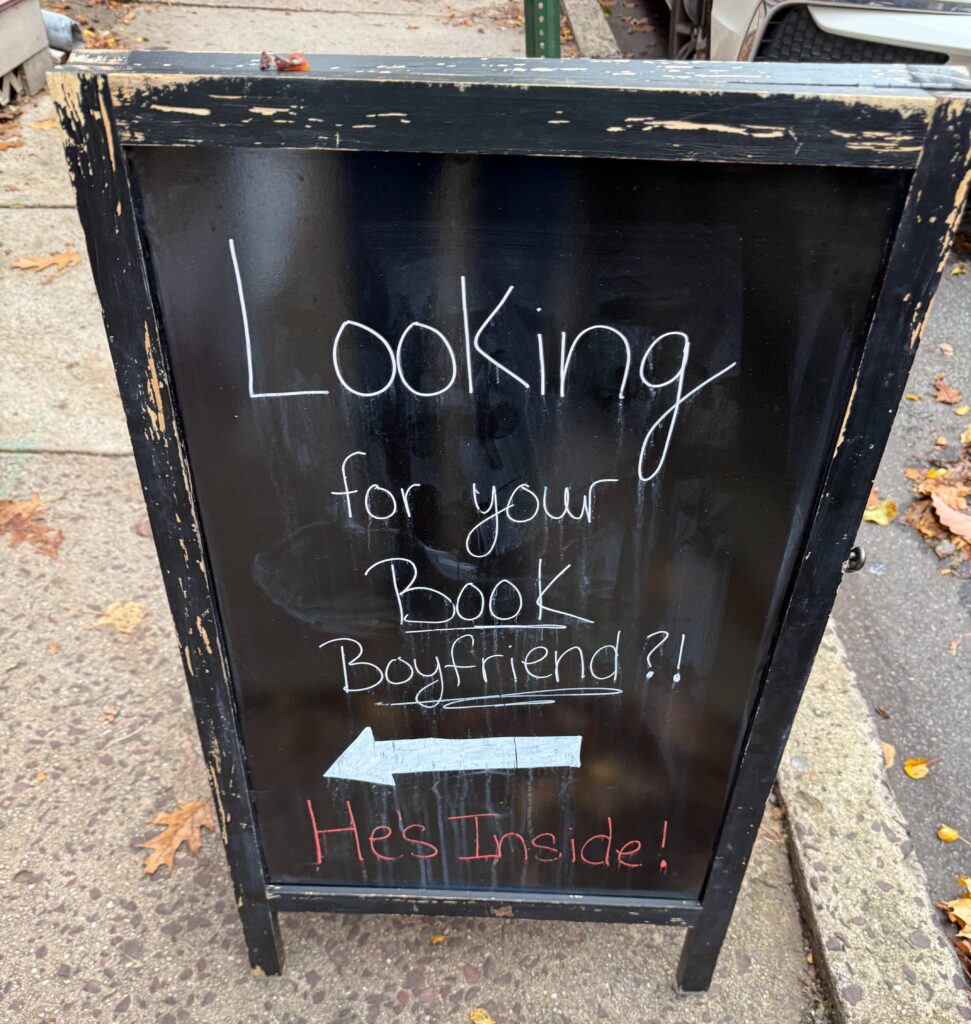 Looking
for your
Book
Boyfriend?!
He's Inside!